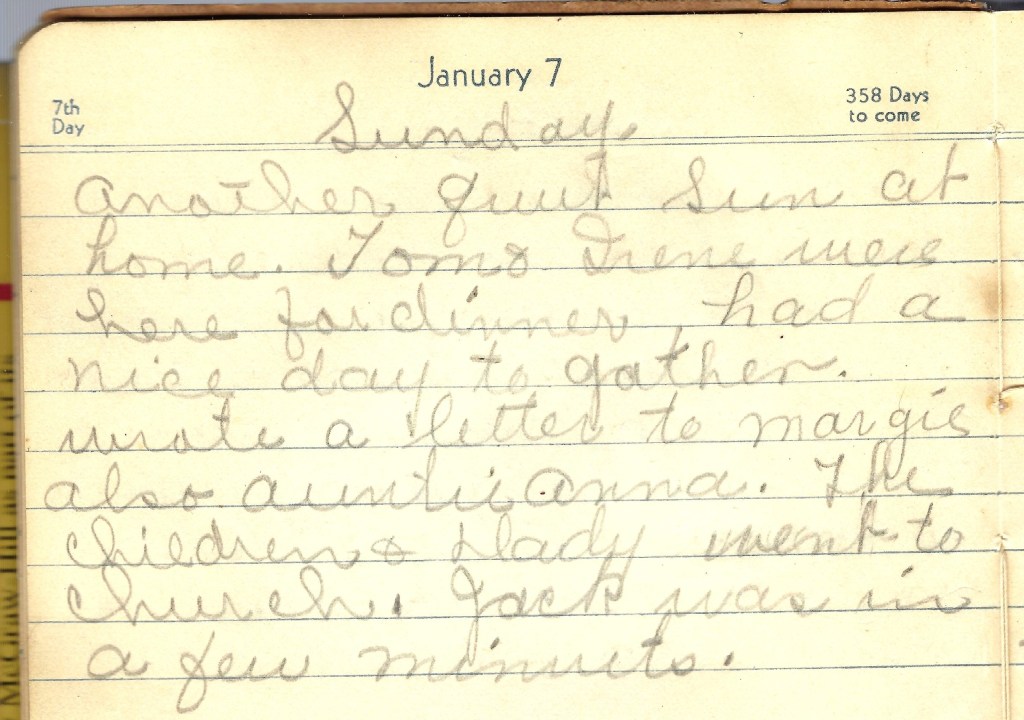 January 7
7th
Day
358 Days
to come
Sunday
another quiet Sun at
home. Tom & Irene were
here for dinner, had a
nice day to gather.
wrote a letter to margie
also auntie anna. The
children & Dady went to
church. Jack was in
a few minuets.